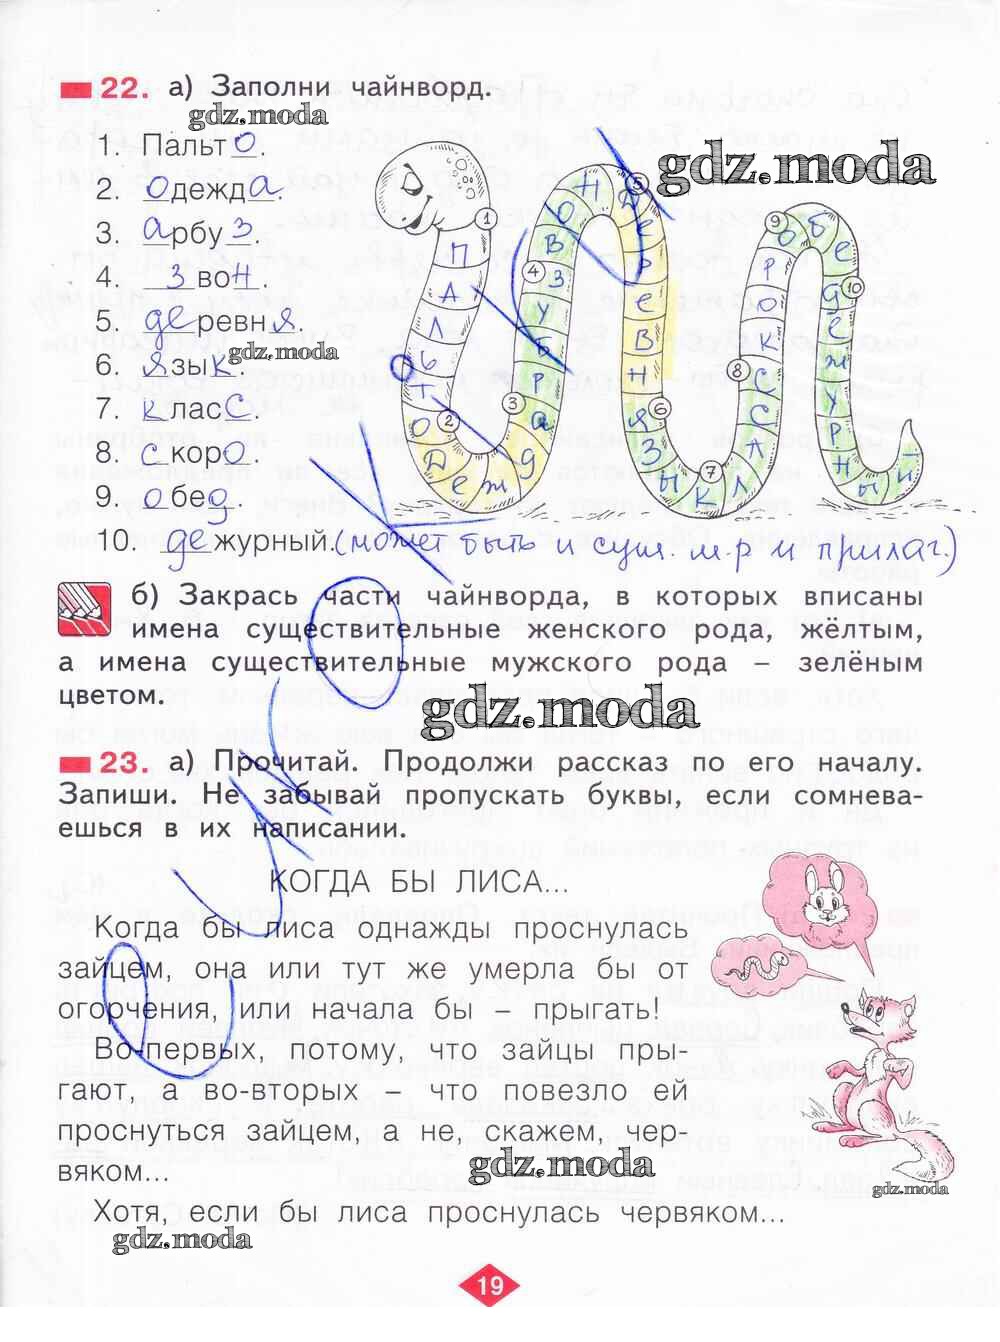 22. а) Заполни чайнворд.
gdz.moda
1. Пальто.
2. одежда.
3. арбуз.
4. звон.
5. деревня.
gdz.moda
6. язык.
7. класс.
8. скоро.
9. обед.
10. дежурный. (может быть и сущ. м.р и прилаг.)
gdz.moda
1 П А Л Ь Т О
2 Д е ж д а
3 р б у з
4 В О Н
5 Д Е Р Е В Н Я
6 З Ы К
7 Л А С С
8 К О Р О
9 б е д
10 е ж у р н ы й
б) Закрась части чайнворда, в которых вписаны
имена существительные женского рода, жёлтым,
а имена существительные мужского рода – зелёным
цветом.
gdz.moda
23. а) Прочитай. Продолжи рассказ по его началу.
Запиши. Не забывай пропускать буквы, если сомнева-
ешься в их написании.
КОГДА БЫ ЛИСА...
Когда бы лиса однажды проснулась
зайцем, она или тут же умерла бы от
огорчения, или начала бы – прыгать!
Во-первых, потому, что зайцы пры-
гают, а во-вторых – что повезло ей
проснуться зайцем, а не, скажем, чер-
вяком...
gdz.moda
gdz.moda
Хотя, если бы лиса проснулась червяком...
gdz.moda
19